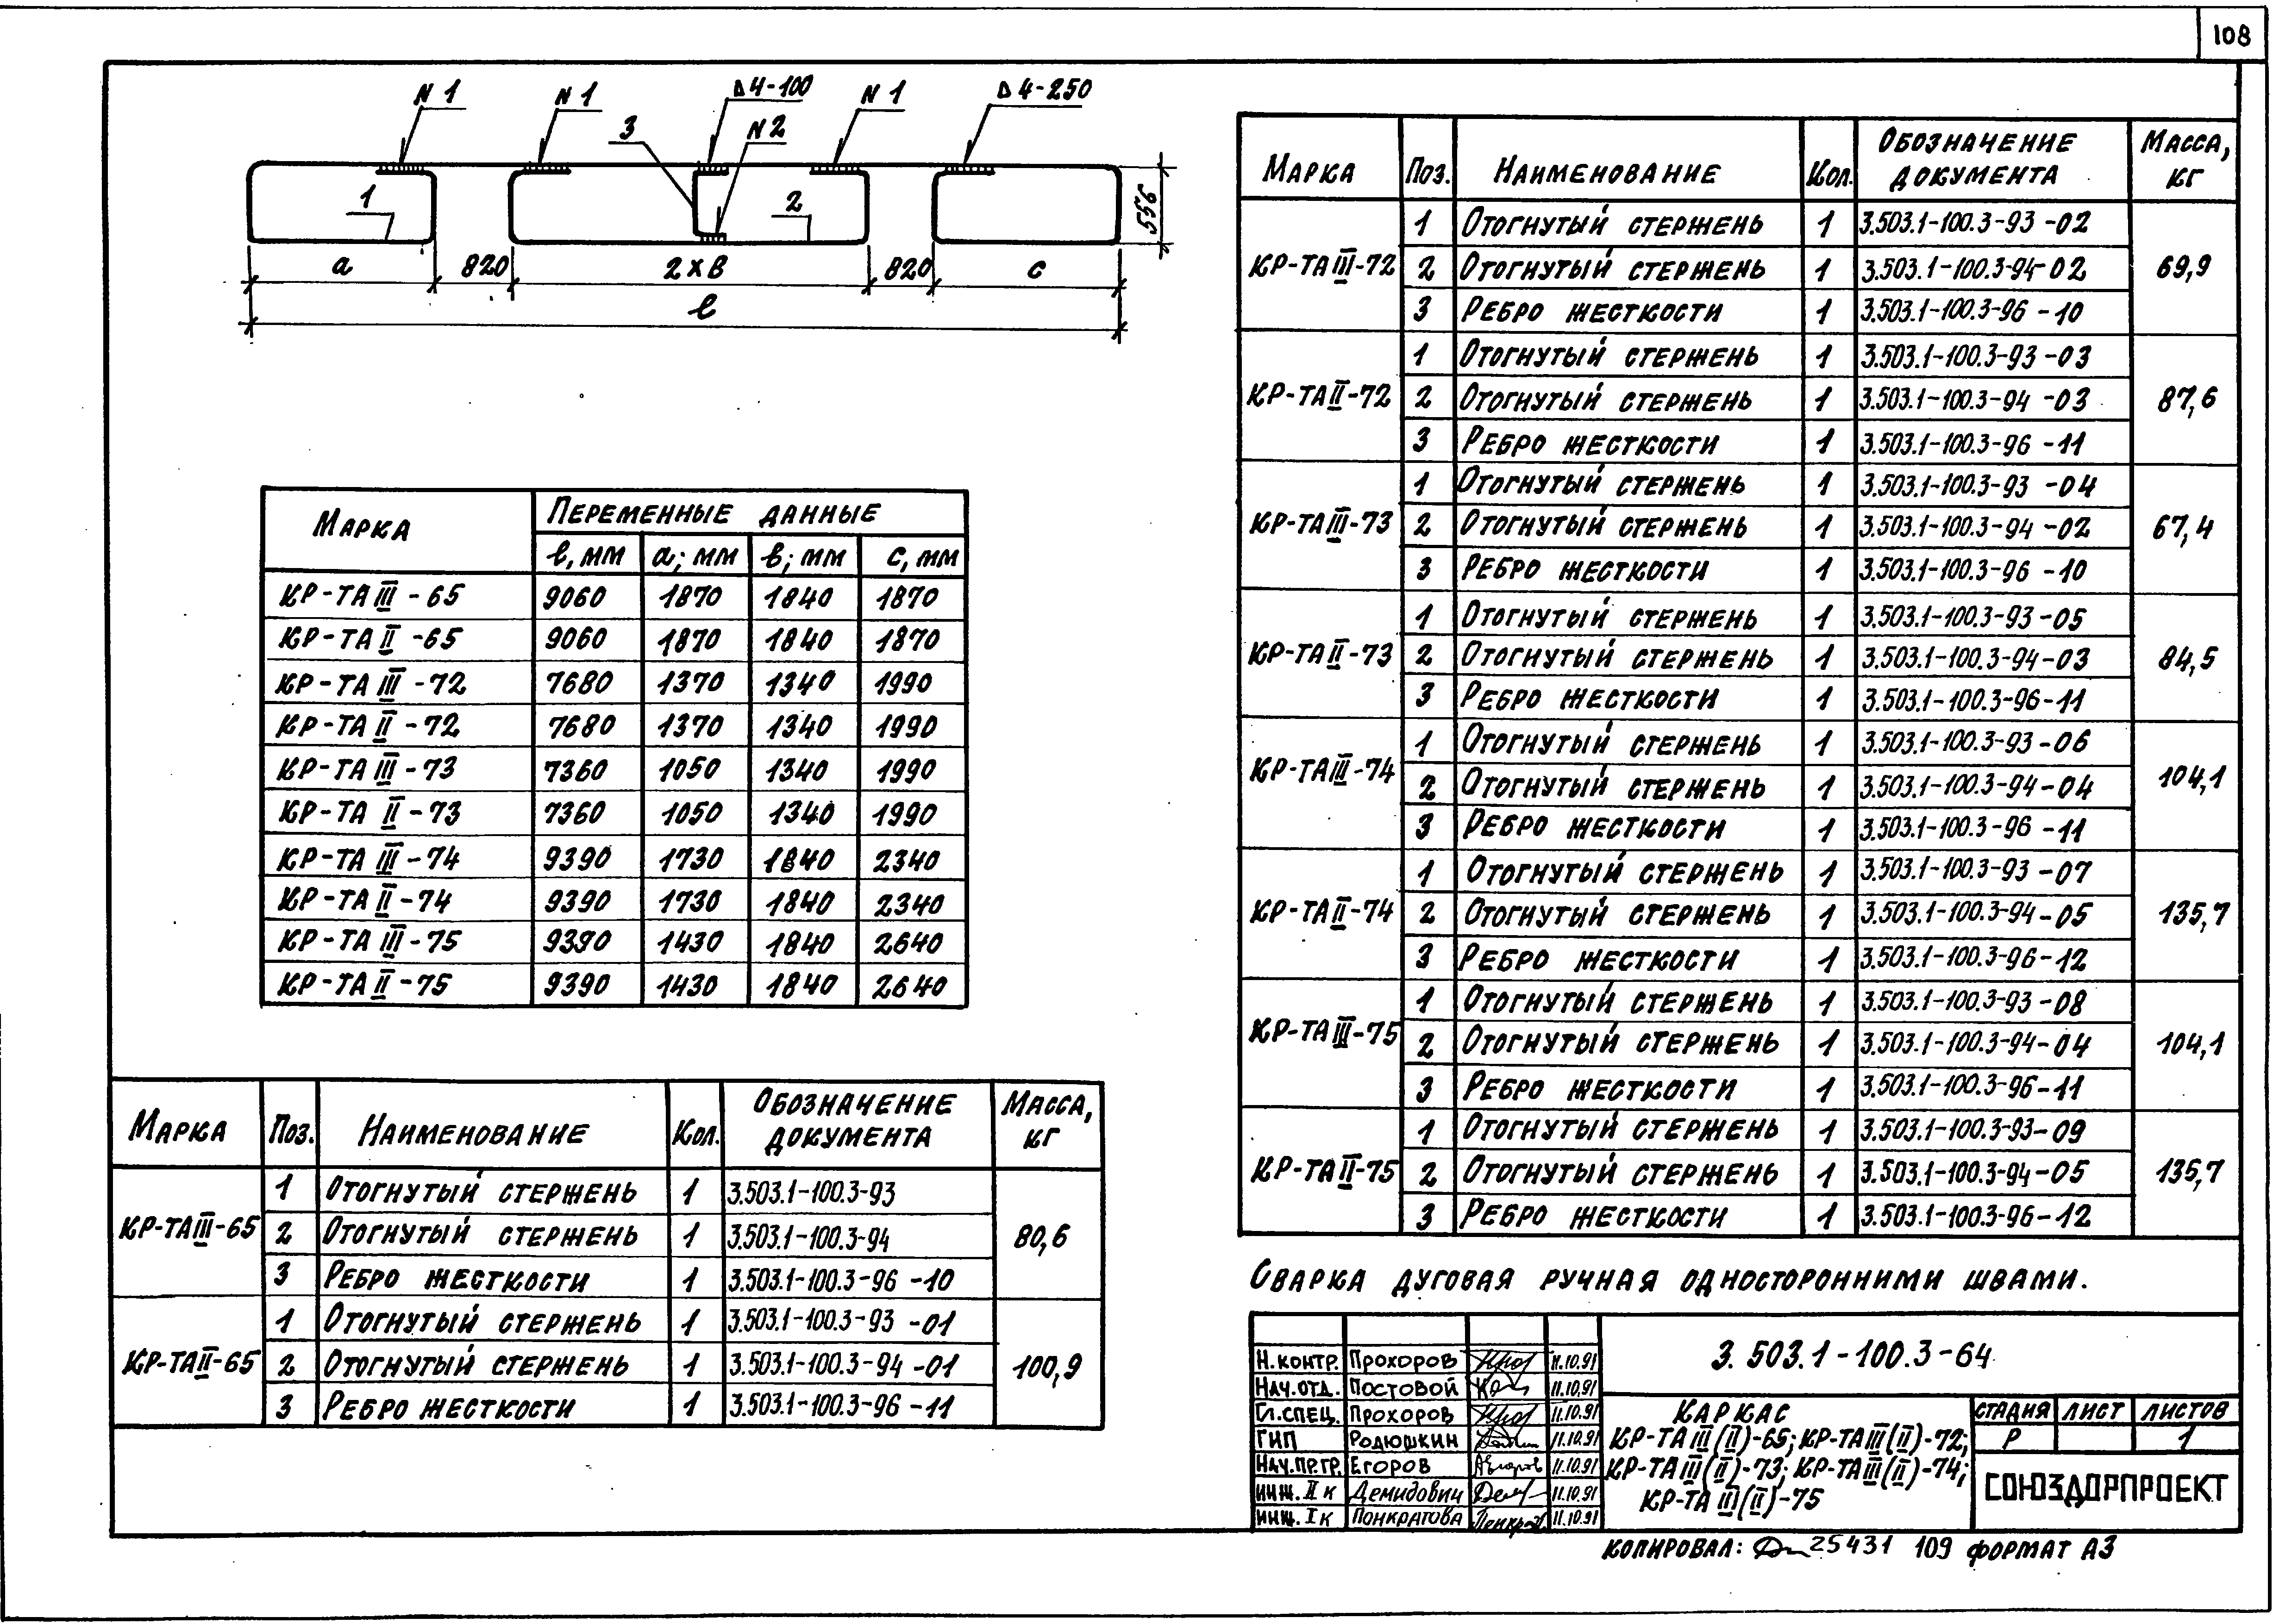 108
N 1
N 1
Δ4-100
N 1
Δ4-250
3
N 2
1
2
556
a
820
2×в
820
c
ℓ
Марка
Переменные данные
ℓ, мм
a; мм
в; мм
c, мм
КР-ТАIII-65 9060 1870 1840 1870
КР-ТАII-65 9060 1870 1840 1870
КР-ТАIII-72 7680 1370 1340 1990
КР-ТАII-72 7680 1370 1340 1990
КР-ТАIII-73 7360 1050 1340 1990
КР-ТАII-73 7360 1050 1340 1990
КР-ТАIII-74 9390 1730 1840 2340
КР-ТАII-74 9390 1730 1840 2340
КР-ТАIII-75 9390 1430 1840 2640
КР-ТАII-75 9390 1430 1840 2640
Марка Поз. Наименование Кол. Обозначение документа Масса, кг
КР-ТАIII-65
1 Отогнутый стержень 1 3.503.1-100.3-93
2 Отогнутый стержень 1 3.503.1-100.3-94
3 Ребро жесткости 1 3.503.1-100.3-96-10
80,6
КР-ТАII-65
1 Отогнутый стержень 1 3.503.1-100.3-93-01
2 Отогнутый стержень 1 3.503.1-100.3-94-01
3 Ребро жесткости 1 3.503.1-100.3-96-11
100,9
Марка Поз. Наименование Кол. Обозначение документа Масса, кг
КР-ТАIII-72
1 Отогнутый стержень 1 3.503.1-100.3-93-02
2 Отогнутый стержень 1 3.503.1-100.3-94-02
3 Ребро жесткости 1 3.503.1-100.3-96-10
69,9
КР-ТАII-72
1 Отогнутый стержень 1 3.503.1-100.3-93-03
2 Отогнутый стержень 1 3.503.1-100.3-94-03
3 Ребро жесткости 1 3.503.1-100.3-96-11
87,6
КР-ТАIII-73
1 Отогнутый стержень 1 3.503.1-100.3-93-04
2 Отогнутый стержень 1 3.503.1-100.3-94-02
3 Ребро жесткости 1 3.503.1-100.3-96-10
67,4
КР-ТАII-73
1 Отогнутый стержень 1 3.503.1-100.3-93-05
2 Отогнутый стержень 1 3.503.1-100.3-94-03
3 Ребро жесткости 1 3.503.1-100.3-96-11
84,5
КР-ТАIII-74
1 Отогнутый стержень 1 3.503.1-100.3-93-06
2 Отогнутый стержень 1 3.503.1-100.3-94-04
3 Ребро жесткости 1 3.503.1-100.3-96-11
104,1
КР-ТАII-74
1 Отогнутый стержень 1 3.503.1-100.3-93-07
2 Отогнутый стержень 1 3.503.1-100.3-94-05
3 Ребро жесткости 1 3.503.1-100.3-96-12
135,7
КР-ТАIII-75
1 Отогнутый стержень 1 3.503.1-100.3-93-08
2 Отогнутый стержень 1 3.503.1-100.3-94-04
3 Ребро жесткости 1 3.503.1-100.3-96-11
104,1
КР-ТАII-75
1 Отогнутый стержень 1 3.503.1-100.3-93-09
2 Отогнутый стержень 1 3.503.1-100.3-94-05
3 Ребро жесткости 1 3.503.1-100.3-96-12
135,7
Сварка дуговая ручная односторонними швами.
Н.контр. Прохоров 11.10.91
Нач.отд. Постовой 11.10.91
Гл.спец. Прохоров 11.10.91
ГИП Родюшкин 11.10.91
Нач.пр.гр. Егоров 11.10.91
инж. II к Демидович 11.10.91
инж. I к Понкратова 11.10.91
3.503.1-100.3-64
Каркас
КР-ТАIII(II)-65; КР-ТАIII(II)-72;
КР-ТАIII(II)-73; КР-ТАIII(II)-74;
КР-ТАIII(II)-75
стадия лист листов
Р 1
СОЮЗДОРПРОЕКТ
Копировал: 25431 109 Формат А3